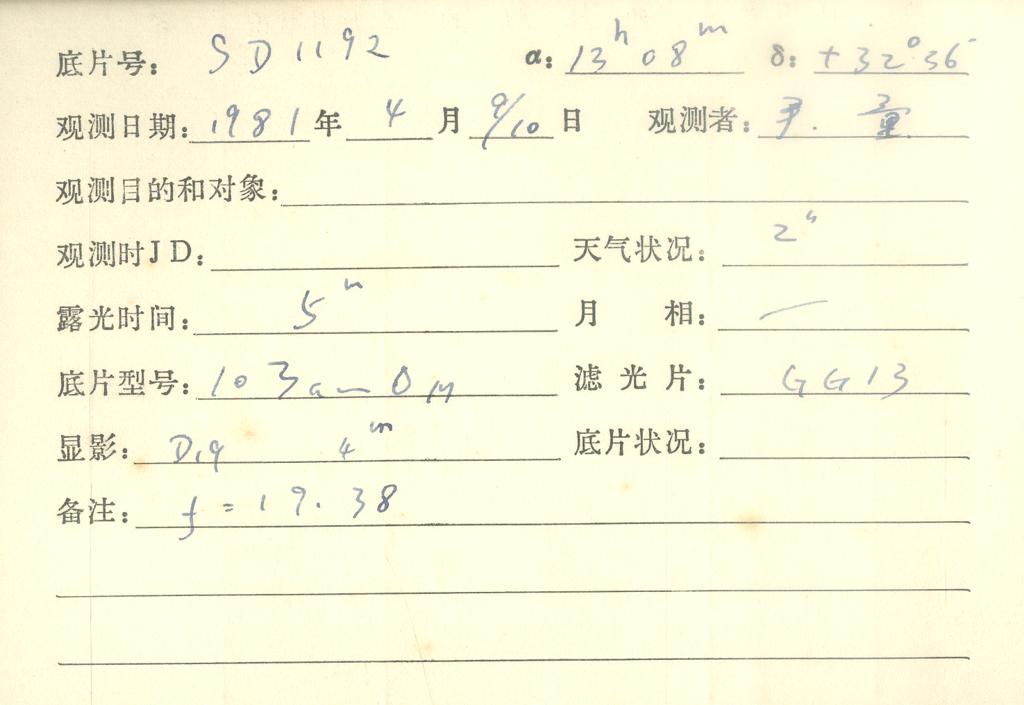 底片号: SD1192 α: 13ʰ 08ᵐ δ: +32°36
观测日期: 1981 年 4 月 9/10 日 观测者: 尹. 童
观测目的和对象:
观测时JD: 天气状况: 2ʰ
露光时间: 5ᵐ 月 相: 一
底片型号: 103a—OM 滤光片: GG13
显影: D19 4ᵐ 底片状况:
备注: f=19.38